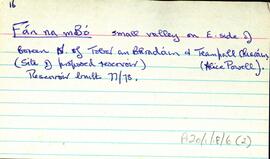 16
Fán na mBó small valley on E. side of
boreen N. of Tober an Bhradáin & Teampall Chiaráin
(Site of proposed reservoir) (Alice Powell).
Reservoir built 77/78.
P20/1/8/6 (2)